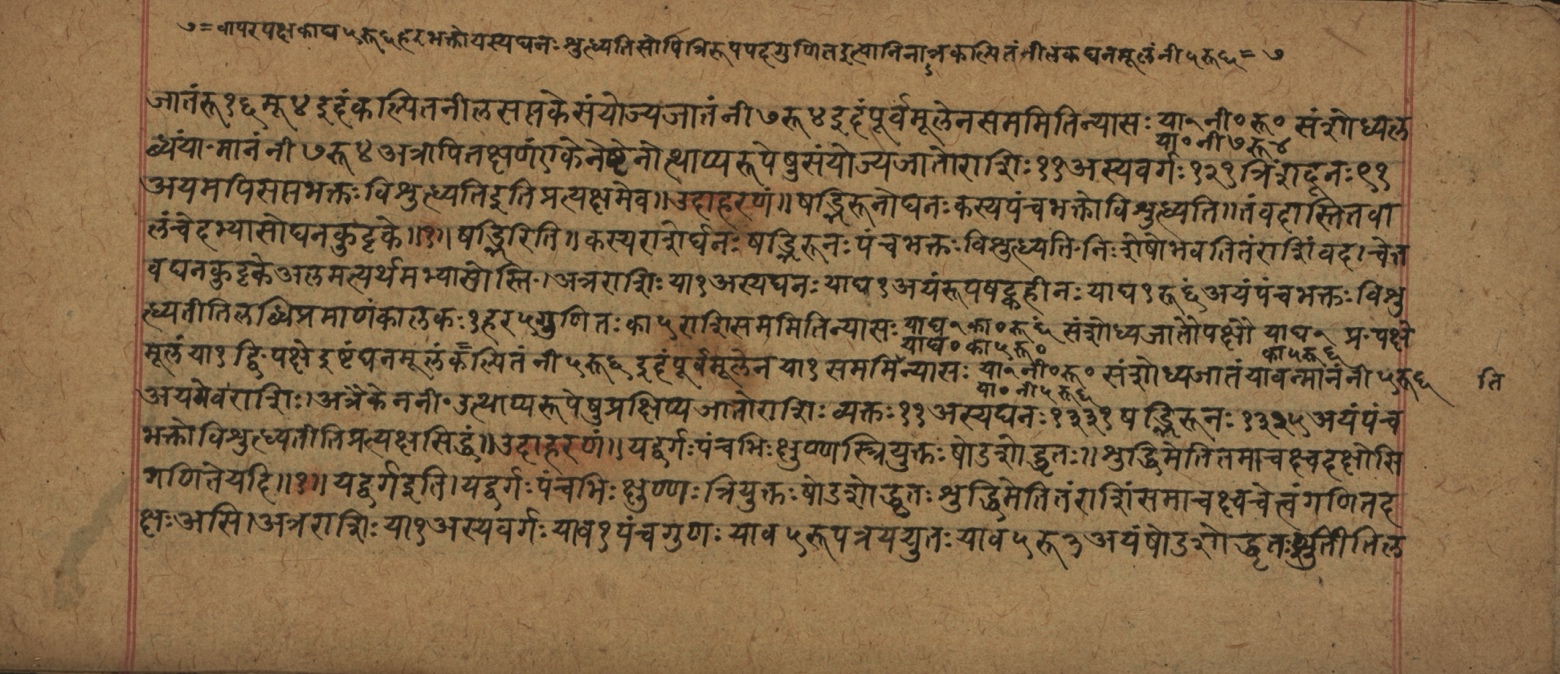 ७ = वापरपक्षकाघ ५ रू ६ हरभक्तोयस्यघनः शुत्ध्यतिसोपित्रिरूपपदगुणित इत्यानिनात्रकल्पितंनीलकघनमूलंनी ५ रू ६ = ७
जातंरू १६ मू ४ इदंकल्पितनीलसप्तकेसंयोज्यजातंनी ७ रू ४ इदंपूर्वमूलेनसममितिन्यासः या १ नी ० रू ० संशोध्यल
या ० नी ७ रू ४
ब्धंया॰मानंनी ७ रू ४ अत्रापितक्षणंएकेनेष्टेनोत्थाप्यरूपेषुसंयोज्यजातोराशिः ११ अस्यवर्गः १२१ त्रिंशदूनः ९१
अयमपिसप्तभक्तःविशुत्ध्यतिइतिप्रत्यक्षमेव॥उदाहरणं॥षड्भिरूनोघनःकस्यपंचभक्तोविशुत्ध्यति॥तंवदास्तितवा
लंचेदभ्यासोघनकुट्टके॥१॥षड्भिरिति॥कस्यराशेर्घनः षड्भिरूनःपंचभक्तःविशुत्ध्यति॰निःशेषोभवतितंराशिंवद।चेत्त
वघनकुट्टकेअलमत्यर्थमभ्यासोस्ति।अत्रराशिः या १ अस्यघनः याघ १ अयंरूपषट्कहीनः याघ १ रू ६ं अयंपंचभक्तःविशु
त्ध्यतीतिलब्धिप्रमाणंकालकः १ हर ५ गुणितः का ५ राशिसममितिन्यासः याघ १ का ० रू ६ं संशोध्यजातोपक्षौ याघ १ प्र॰पक्षे
याघ ० का ५ रू ० का ५ रू ६
मूलंया १ द्वि॰पक्षेइष्टंघनमूलंकल्पितं नी ५ रू ६ इदंपूर्वमूलेनया १ सममिन्यासः या १ नी ० रू ० संशोध्यजातंयावन्मानंनी ५ रू ६ ति
या ० नी ५ रू ६
अयमेवराशिः।अत्रैकेननी॰उत्थाप्यरूपेषुप्रक्षिप्यजातोराशिःव्यक्तः ११ अस्यघनः १३३१ षड्भिरूनः १३२५ अयंपंच
भक्तोविशुत्ध्यतीतिप्रत्यक्षसिद्धं॥उदाहरणं॥यद्वर्गःपंचभिःक्षुण्णस्त्रियुक्तःषोडशोद्धृतः॥शुद्धिमेतितमाचक्ष्वदक्षोसि
गणितेयदि॥१॥यद्वर्गइति।यद्वर्गःपंचभिः क्षुण्णःत्रियुक्तःषोडशोद्धृतःशुद्धिमेतितंराशिंसमाचक्ष्वचेत्त्वंगणितद
क्षःअसि।अत्रराशिः या १ अस्यवर्गः याव १ पंचगुणः याव ५ रूपत्रययुतः याव ५ रू ३ अयंषोडशोद्धृतःशुतीतिल